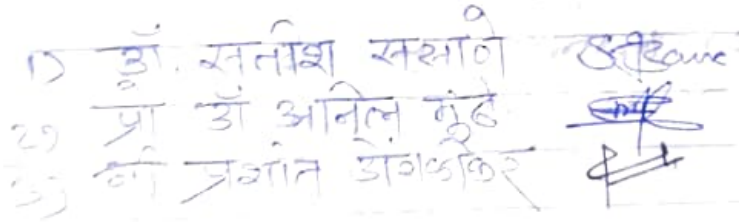 1) डॉ. सतीश ससाणे
2) प्रा डॉ अनिल मुंढे
3) श्री प्रशांत